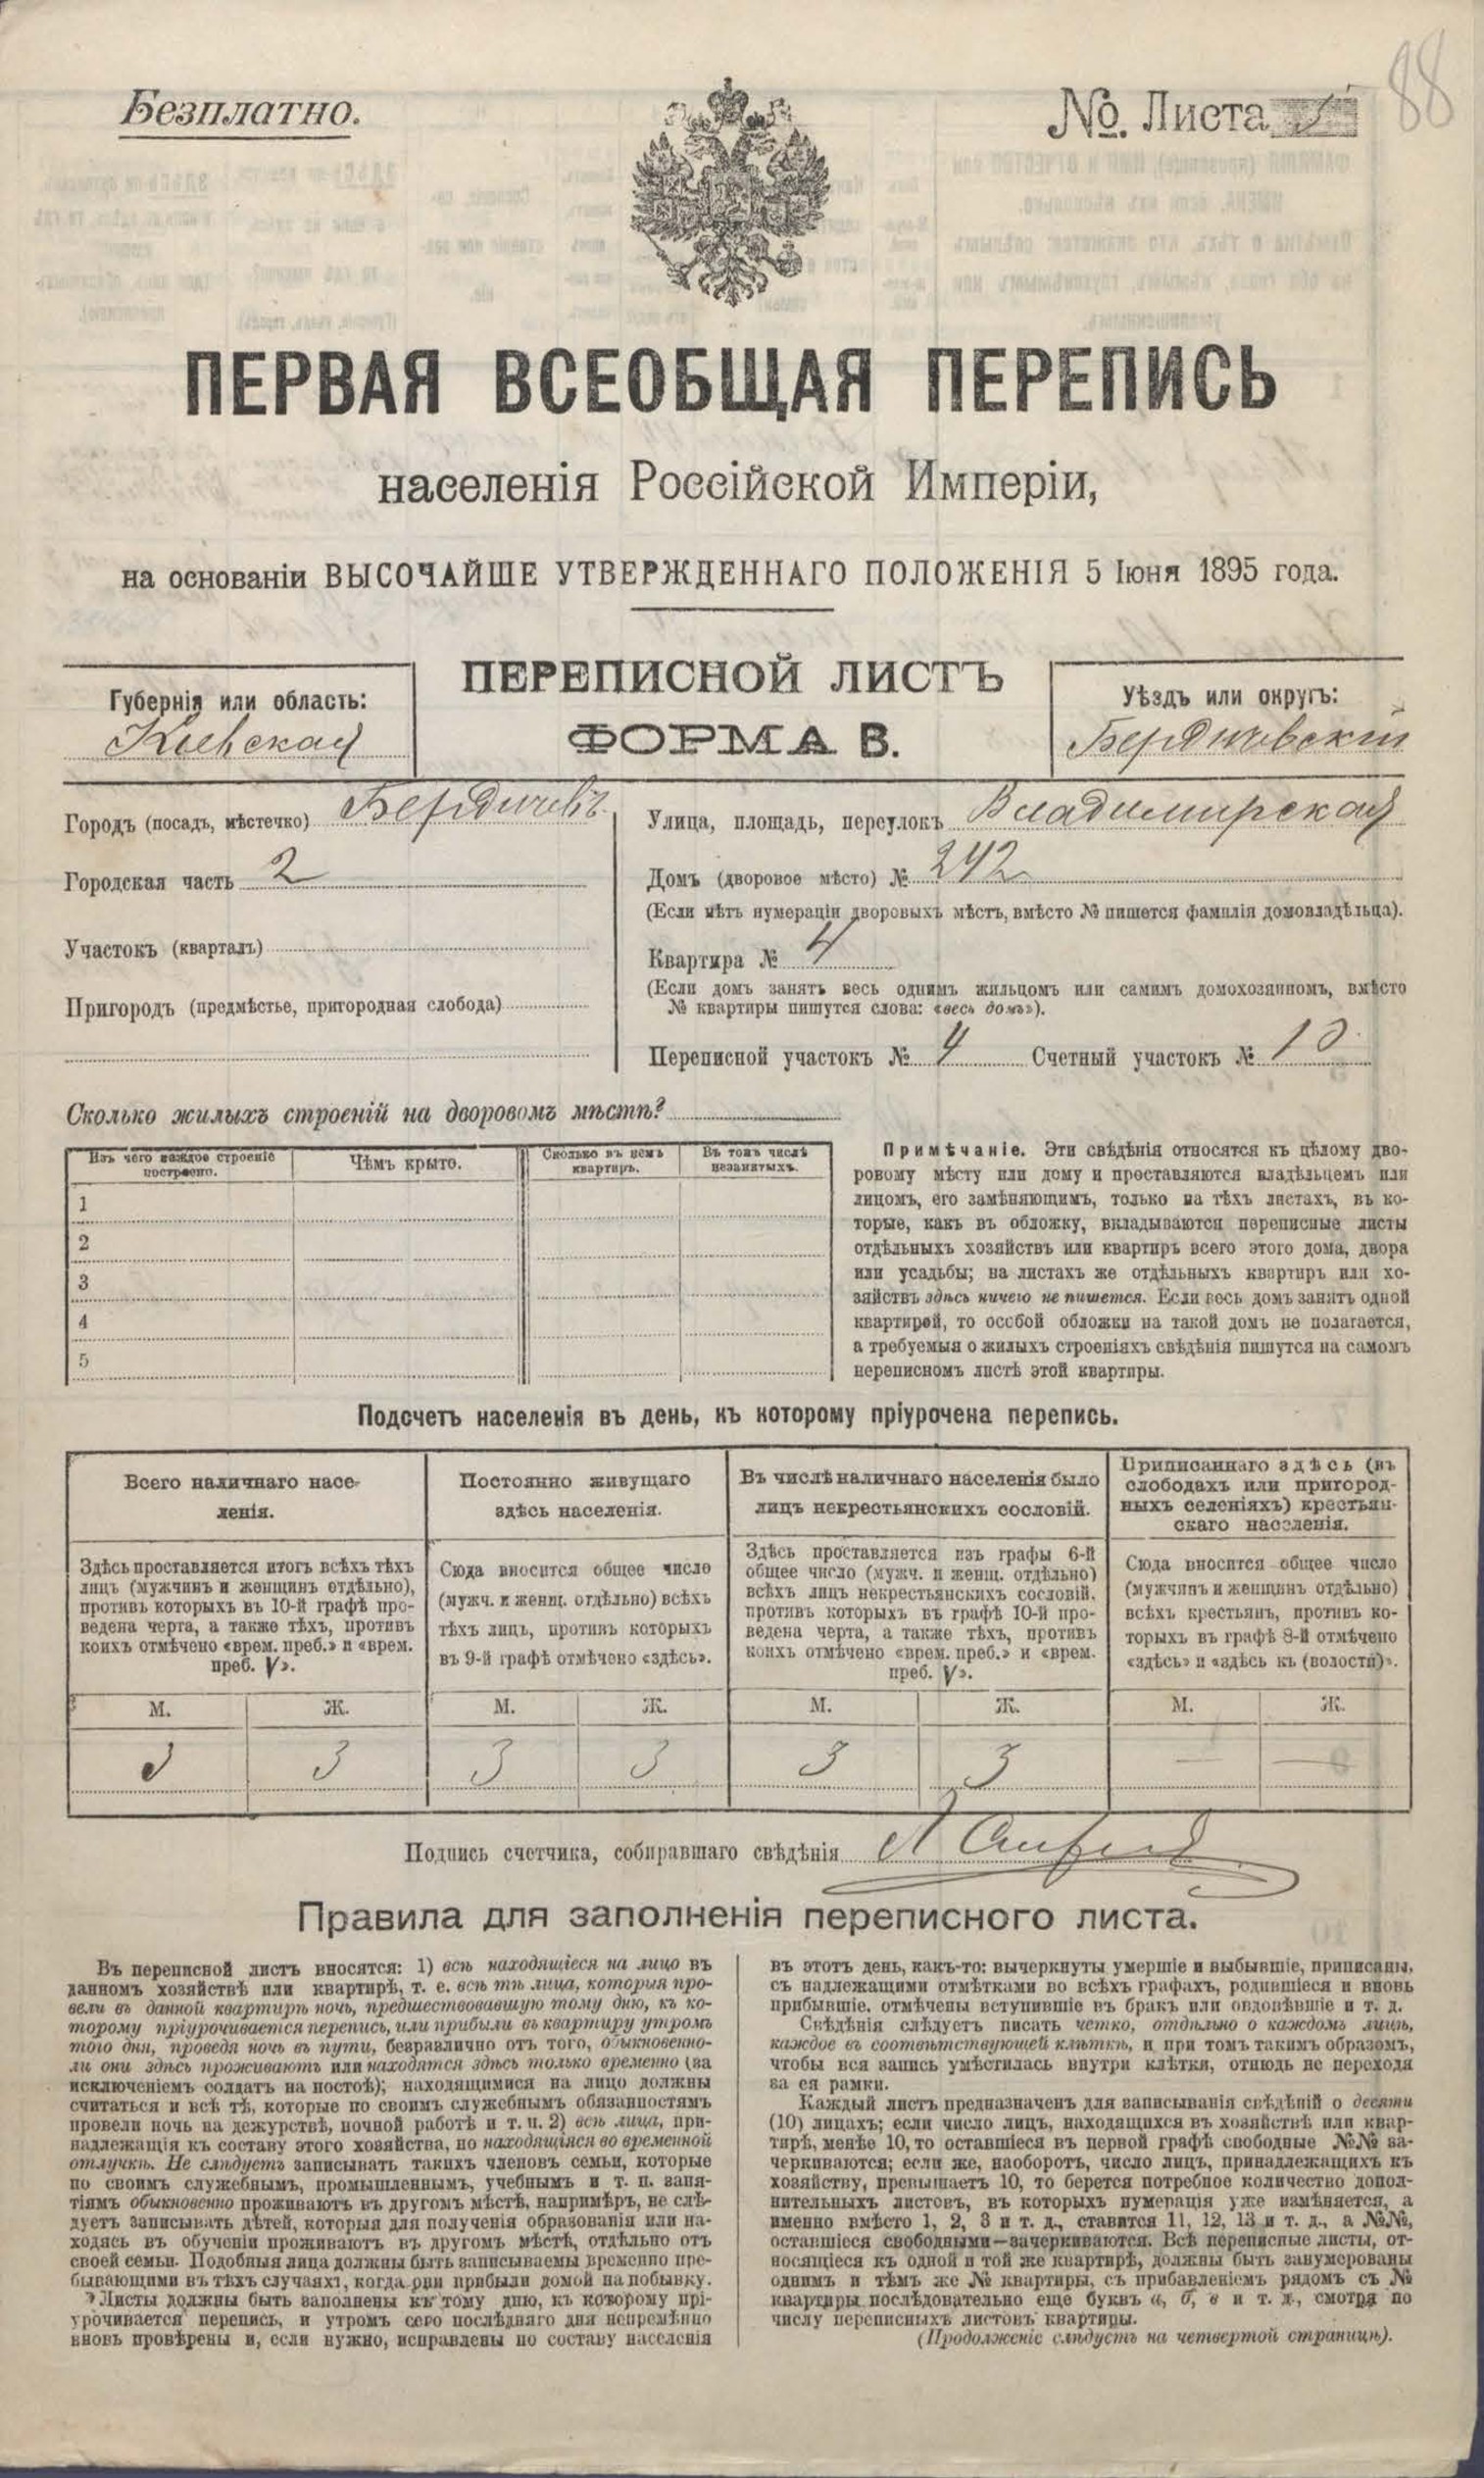 Безплатно.
№. Листа
88
ПЕРВАЯ ВСЕОБЩАЯ ПЕРЕПИСЬ
населенія Россійской Имперіи,
на основаніи ВЫСОЧАЙШЕ УТВЕРЖДЕННАГО ПОЛОЖЕНІЯ 5 Іюня 1895 года.
ПЕРЕПИСНОЙ ЛИСТЪ
ФОРМА В.
Губернія или область:
Кіевская
Уѣздъ или округъ:
Бердичевскій
Городъ (посадъ, мѣстечко) Бердичевъ
Городская часть 2
Участокъ (кварталъ)
Пригородъ (предмѣстье, пригородная слобода)
Улица, площадь, переулокъ Владимирская
Домъ (дворовое мѣсто) № 242
(Если нѣтъ нумераціи дворовыхъ мѣстъ, вмѣсто № пишется фамилія домовладѣльца).
Квартира № 4
(Если домъ занятъ весь однимъ жильцомъ или самимъ домохозяиномъ, вмѣсто
№ квартиры пишутся слова: «весь домъ»).
Переписной участокъ № 4 Счетный участокъ № 10
Сколько жилыхъ строеній на дворовомъ мѣстѣ?
Изъ чего каждое строеніе
построено.
Чѣмъ крыто.
Сколько въ немъ
квартиръ.
Въ томъ числѣ
незанятыхъ.
1
2
3
4
5
Примѣчаніе. Эти свѣдѣнія относятся къ цѣлому дво-
ровому мѣсту или дому и проставляются владѣльцемъ или
лицомъ, его замѣняющимъ, только на тѣхъ листахъ, въ ко-
торые, какъ въ обложку, вкладываются переписные листы
отдѣльныхъ хозяйствъ или квартиръ всего этого дома, двора
или усадьбы; на листахъ же отдѣльныхъ квартиръ или хо-
зяйствъ здѣсь ничего не пишется. Если весь домъ занятъ одной
квартирой, то особой обложки на такой домъ не полагается,
а требуемыя о жилыхъ строеніяхъ свѣдѣнія пишутся на самомъ
переписномъ листѣ этой квартиры.
Подсчетъ населенія въ день, къ которому пріурочена перепись.
Всего наличнаго насе-
ленія.
Постоянно живущаго
здѣсь населенія.
Въ числѣ наличнаго населенія было
лицъ некрестьянскихъ сословій.
Приписаннаго здѣсь (въ
слободахъ или пригород-
ныхъ селеніяхъ) крестьян-
скаго населенія.
Здѣсь проставляется итогъ всѣхъ тѣхъ
лицъ (мужчинъ и женщинъ отдѣльно),
противъ которыхъ въ 10-й графѣ про-
ведена черта, а также тѣхъ, противъ
коихъ отмѣчено «врем. преб.» и «врем.
преб. V».
Сюда вносится общее число
(мужч. и женщ. отдѣльно) всѣхъ
тѣхъ лицъ, противъ которыхъ
въ 9-й графѣ отмѣчено «здѣсь».
Здѣсь проставляется изъ графы 6-й
общее число (мужч. и женщ. отдѣльно)
всѣхъ лицъ некрестьянскихъ сословій,
противъ которыхъ въ графѣ 10-й про-
ведена черта, а также тѣхъ, противъ
коихъ отмѣчено «врем. преб.» и «врем.
преб. V».
Сюда вносится общее число
(мужчинъ и женщинъ отдѣльно)
всѣхъ крестьянъ, противъ ко-
торыхъ въ графѣ 8-й отмѣчено
«здѣсь» и «здѣсь къ (волости)».
М. Ж. М. Ж. М. Ж. М. Ж.
3 3 3 3 3 3 — —
Подпись счетчика, собиравшаго свѣдѣнія
Правила для заполненія переписного листа.
Въ переписной листъ вносятся: 1) всѣ находящіеся на лицо въ
данномъ хозяйствѣ или квартирѣ, т. е. всѣ тѣ лица, которыя про-
вели въ данной квартирѣ ночь, предшествовавшую тому дню, къ ко-
торому пріурочивается перепись, или прибыли въ квартиру утромъ
того дня, проведя ночь въ пути, безразлично отъ того, обыкновенно-
ли они здѣсь проживаютъ или находятся здѣсь только временно (за
исключеніемъ солдатъ на постоѣ); находящимися на лицо должны
считаться и всѣ тѣ, которые по своимъ служебнымъ обязанностямъ
провели ночь на дежурствѣ, ночной работѣ и т. п. 2) всѣ лица, при-
надлежащія къ составу этого хозяйства, но находящіяся во временной
отлучкѣ. Не слѣдуетъ записывать такихъ членовъ семьи, которые
по своимъ служебнымъ, промышленнымъ, учебнымъ и т. п. заня-
тіямъ обыкновенно проживаютъ въ другомъ мѣстѣ, напримѣръ, не слѣ-
дуетъ записывать дѣтей, которыя для полученія образованія или на-
ходясь въ обученіи проживаютъ въ другомъ мѣстѣ, отдѣльно отъ
своей семьи. Подобныя лица должны быть записываемы временно пре-
бывающими въ тѣхъ случаяхъ, когда они прибыли домой на побывку.
Листы должны быть заполнены къ тому дню, къ которому прі-
урочивается перепись, и утромъ сего послѣдняго дня непремѣнно
вновь провѣрены и, если нужно, исправлены по составу населенія
въ этотъ день, какъ-то: вычеркнуты умершіе и выбывшіе, приписаны,
съ надлежащими отмѣтками во всѣхъ графахъ, родившіеся и вновь
прибывшіе, отмѣчены вступившіе въ бракъ или овдовѣвшіе и т. д.
Свѣдѣнія слѣдуетъ писать четко, отдѣльно о каждомъ лицѣ,
каждое въ соотвѣтствующей клѣткѣ, и при томъ такимъ образомъ,
чтобы вся запись умѣстилась внутри клѣтки, отнюдь не переходя
за ея рамки.
Каждый листъ предназначенъ для записыванія свѣдѣній о десяти
(10) лицахъ; если число лицъ, находящихся въ хозяйствѣ или квар-
тирѣ, менѣе 10, то оставшіеся въ первой графѣ свободные №№ за-
черкиваются; если же, наоборотъ, число лицъ, принадлежащихъ къ
хозяйству, превышаетъ 10, то берется потребное количество допол-
нительныхъ листовъ, въ которыхъ нумерація уже измѣняется, а
именно вмѣсто 1, 2, 3 и т. д., ставится 11, 12, 13 и т. д., а №№,
оставшіеся свободными—зачеркиваются. Всѣ переписные листы, от-
носящіеся къ одной и той же квартирѣ, должны быть занумерованы
однимъ и тѣмъ же № квартиры, съ прибавленіемъ рядомъ съ №
квартиры послѣдовательно еще буквъ а, б, в и т. д., смотря по
числу переписныхъ листовъ квартиры.
(Продолженіе слѣдуетъ на четвертой страницѣ).